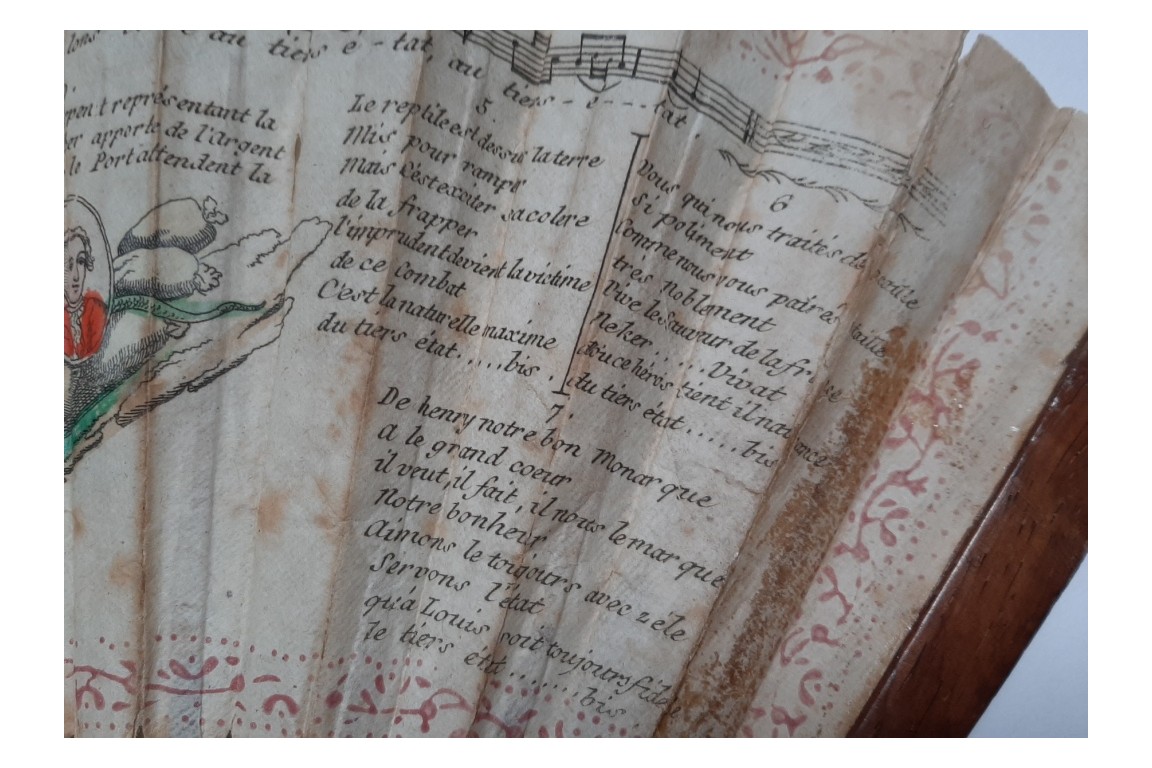 au tiers é - tat, au tiers - é - - - tat
rent représentant la
er apporte de l'Argent
le Port attendent la
5.
Le reptile est dessus la terre
Mis pour rampé
Mais c'est exciter sa colere
de la frapper
l'imprudent devient la victime
de ce Combat
C'est la naturelle maxime
du tiers état.....bis.
6
Vous qui nous traités de
si poliment
Comme nous vous pairés
très noblement
Vive le sauveur de la france
Neker.....Vivat
du tiers etat.....bis
7.
De henry notre bon Monarque
a le grand coeur
il veut, il fait, il nous le marque
Notre bonheur
Aimons le toujours avec zéle
Servons l'état
qu'à Louis soit toujours fidele
le tiers état.......bis.